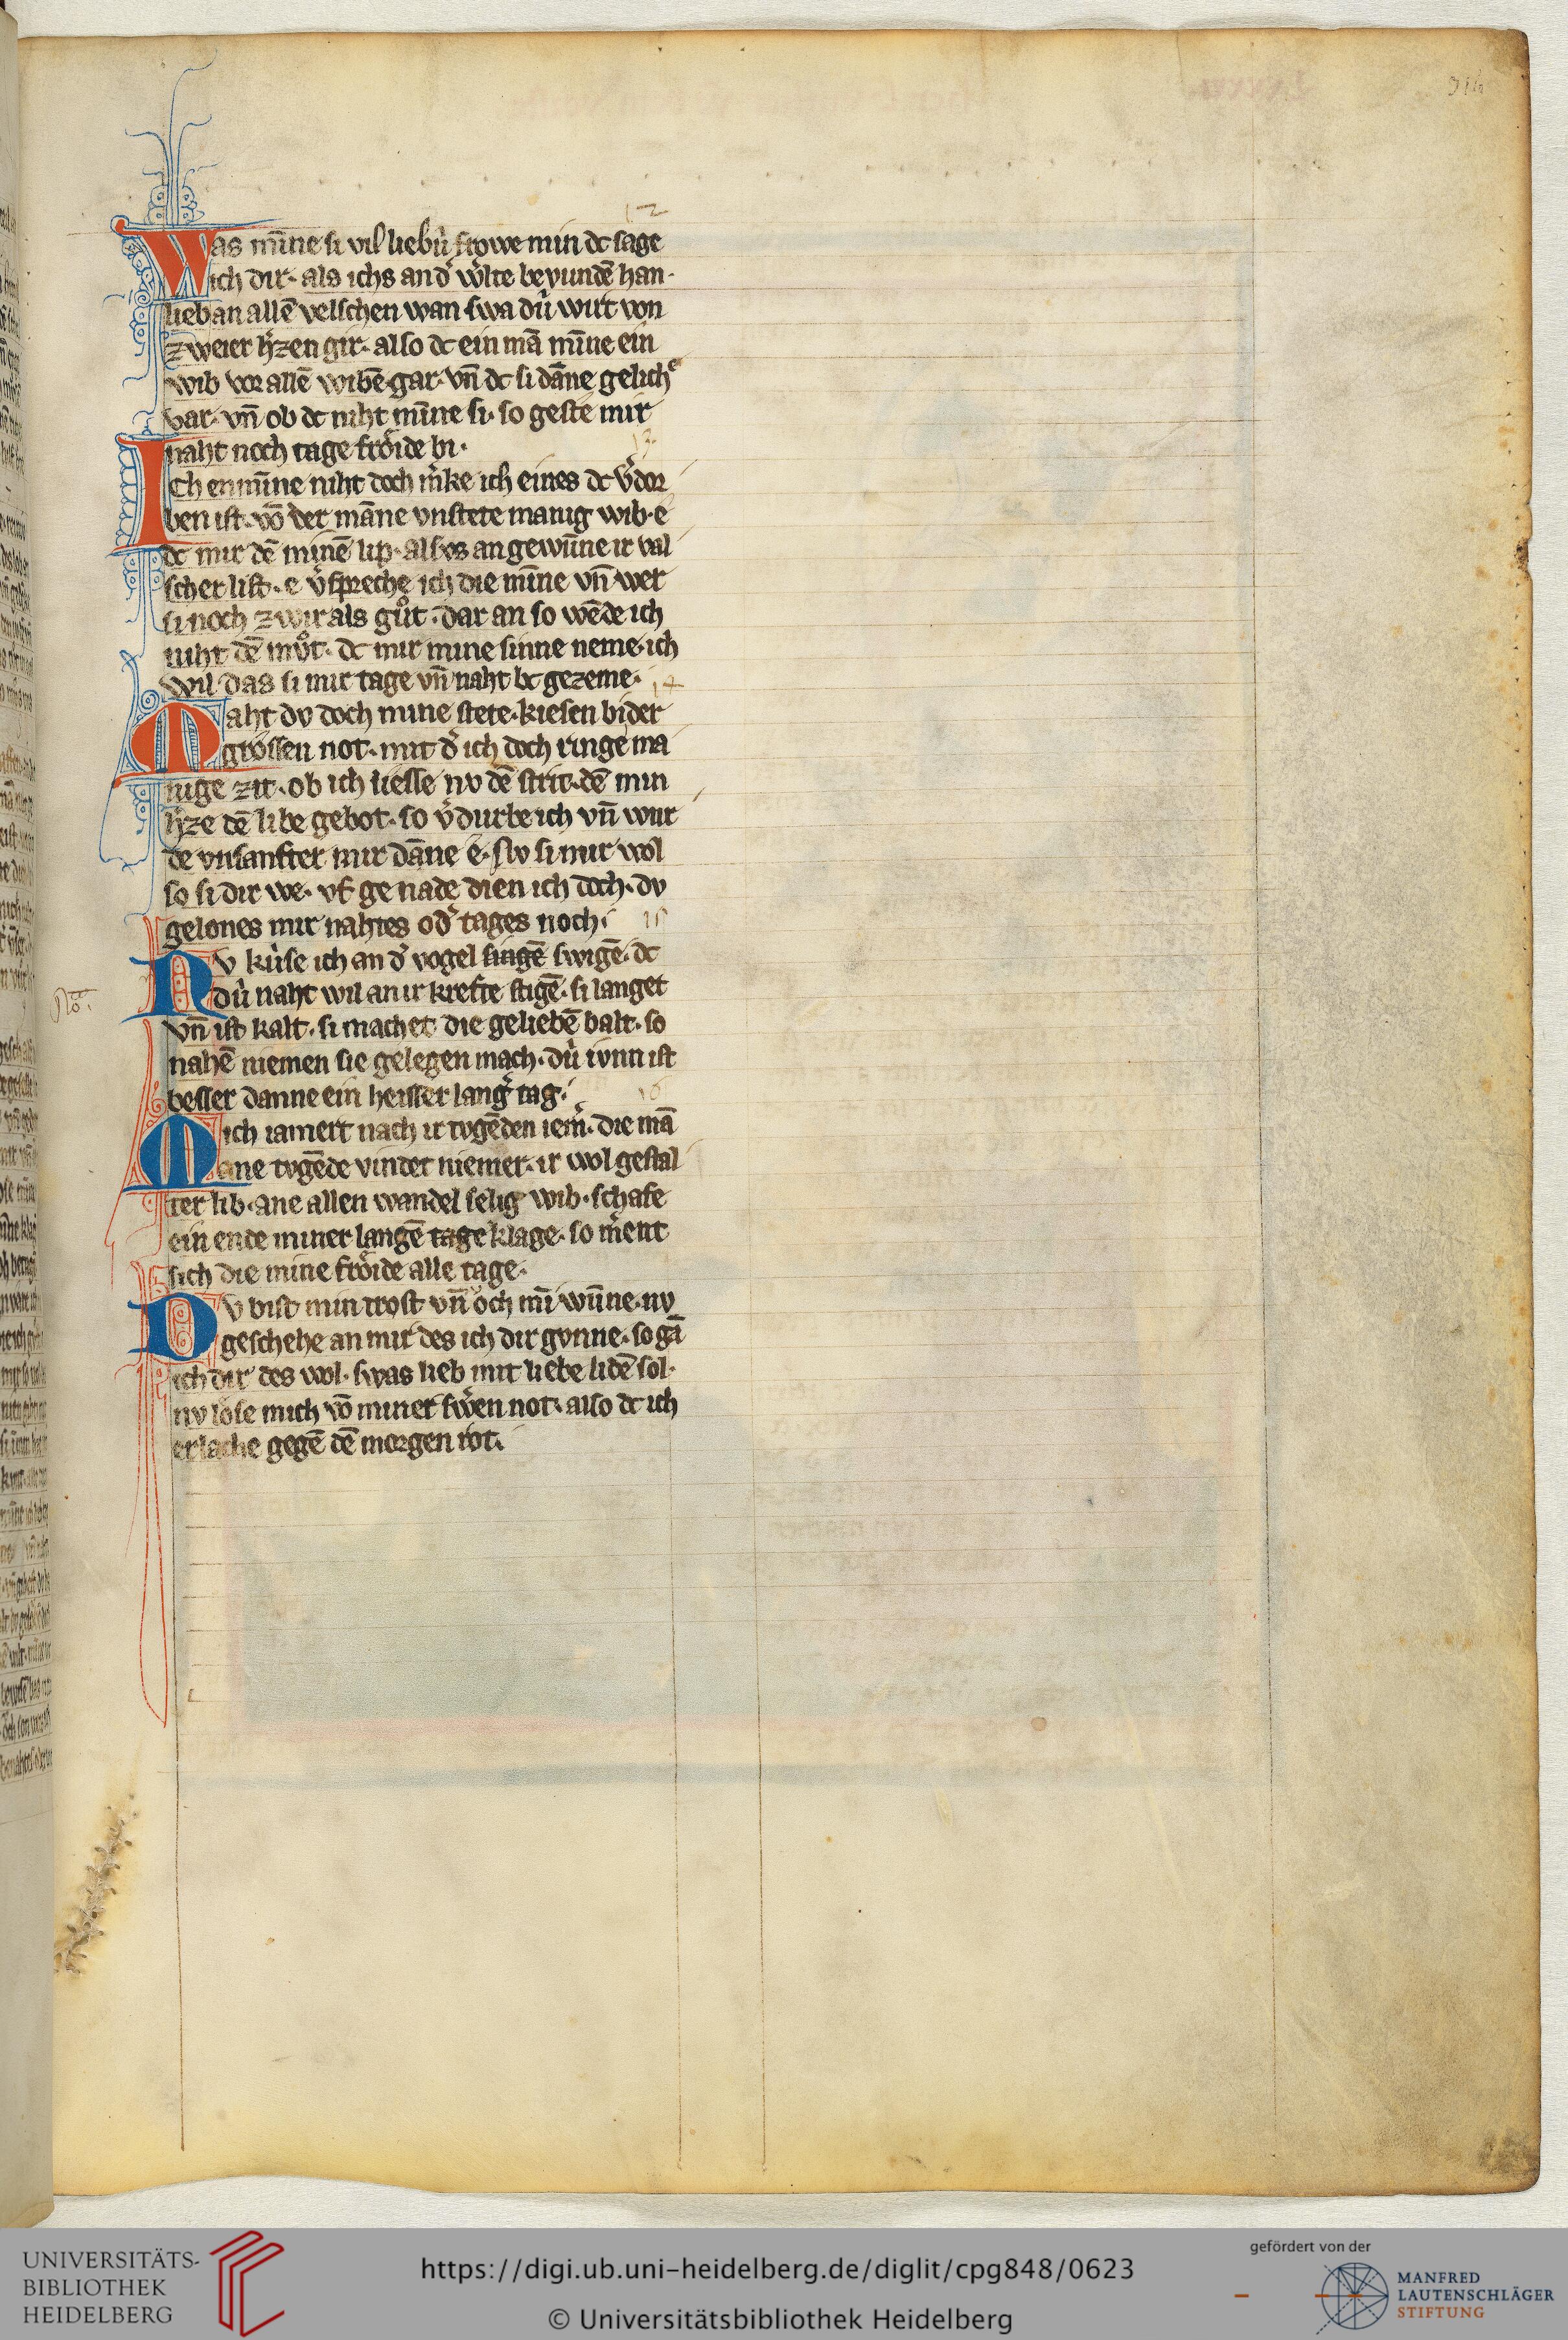 314
12
Was mīne si vil liebů frowe min dc sage
ich dir· als ichs an d͛ w͛lte bevundē han·
lieb an allē velschen wan swa dů wirt von
zweier h͛zen gir· also dc ein mā mīne ein
wib vor allē wibē gar· vn̄ dc si dāne gelich͛
var· vn̄ ob dc niht mīne si· so geste mir
naht noch tage froͤide bi·
13
Ich enmīne niht doch m͛ke ich eines dc v͛dor
ben ist· vō der māne vnstete manig wib· e
dc mir dē minē lip· alsvs an gewūne ir val
scher list· e v͛spreche ich die mīne vn̄ wer
si noch zwir als gůt· dar an so wēde ich
niht dē můt· dc mir mine sinne neme· ich
wil das si mir tage vn̄ naht bc gezeme·
14
Maht dv doch mine stete· kiesen bi der
grossen not· mit d͛ ich doch ringe ma
nige zit· ob ich liesse nv dē strit· dē min
h͛ze dē libe gebot· so v͛durbe ich vn̄ wur
de vnsanfter mir dāne e· swi si mir wol
so si dir we· vf genade dien ich doch· dv
gelones mir nahtes od͛ tages noch·
15
Nv kůse ich an d͛ vogel singē swigē· dc
dů naht wil an ir krefte stigē· si langet
vn̄ ist kalt· si machet die geliebē balt· so
nahē niemen sie gelegen mach· dů ivnn ist
besser danne ein heisser lang͛ tag·
16
Mich iamert nach ir tvgēden iem͛· die mā
ane tvgēde vindet niemer· ir wol gestal
ter lib· ane allen wandel selig wib· schafe
ein ende miner langē tage klage· so m͛ent
sich die mine froͤide alle tage·
Dv bist min trost vn̄ och mī wūne· nv
geschehe an mir des ich dir gvnne· so gā
ich dir des wol· swas lieb mit liebe lidē sol·
nv lose mich vō miner sw͛en not· also dc ich
erlache gegē dē morgen rot·
UNIVERSITÄTS-
BIBLIOTHEK
HEIDELBERG
https://digi.ub.uni-heidelberg.de/diglit/cpg848/0623
© Universitätsbibliothek Heidelberg
gefördert von der
MANFRED
LAUTENSCHLÄGER
STIFTUNG